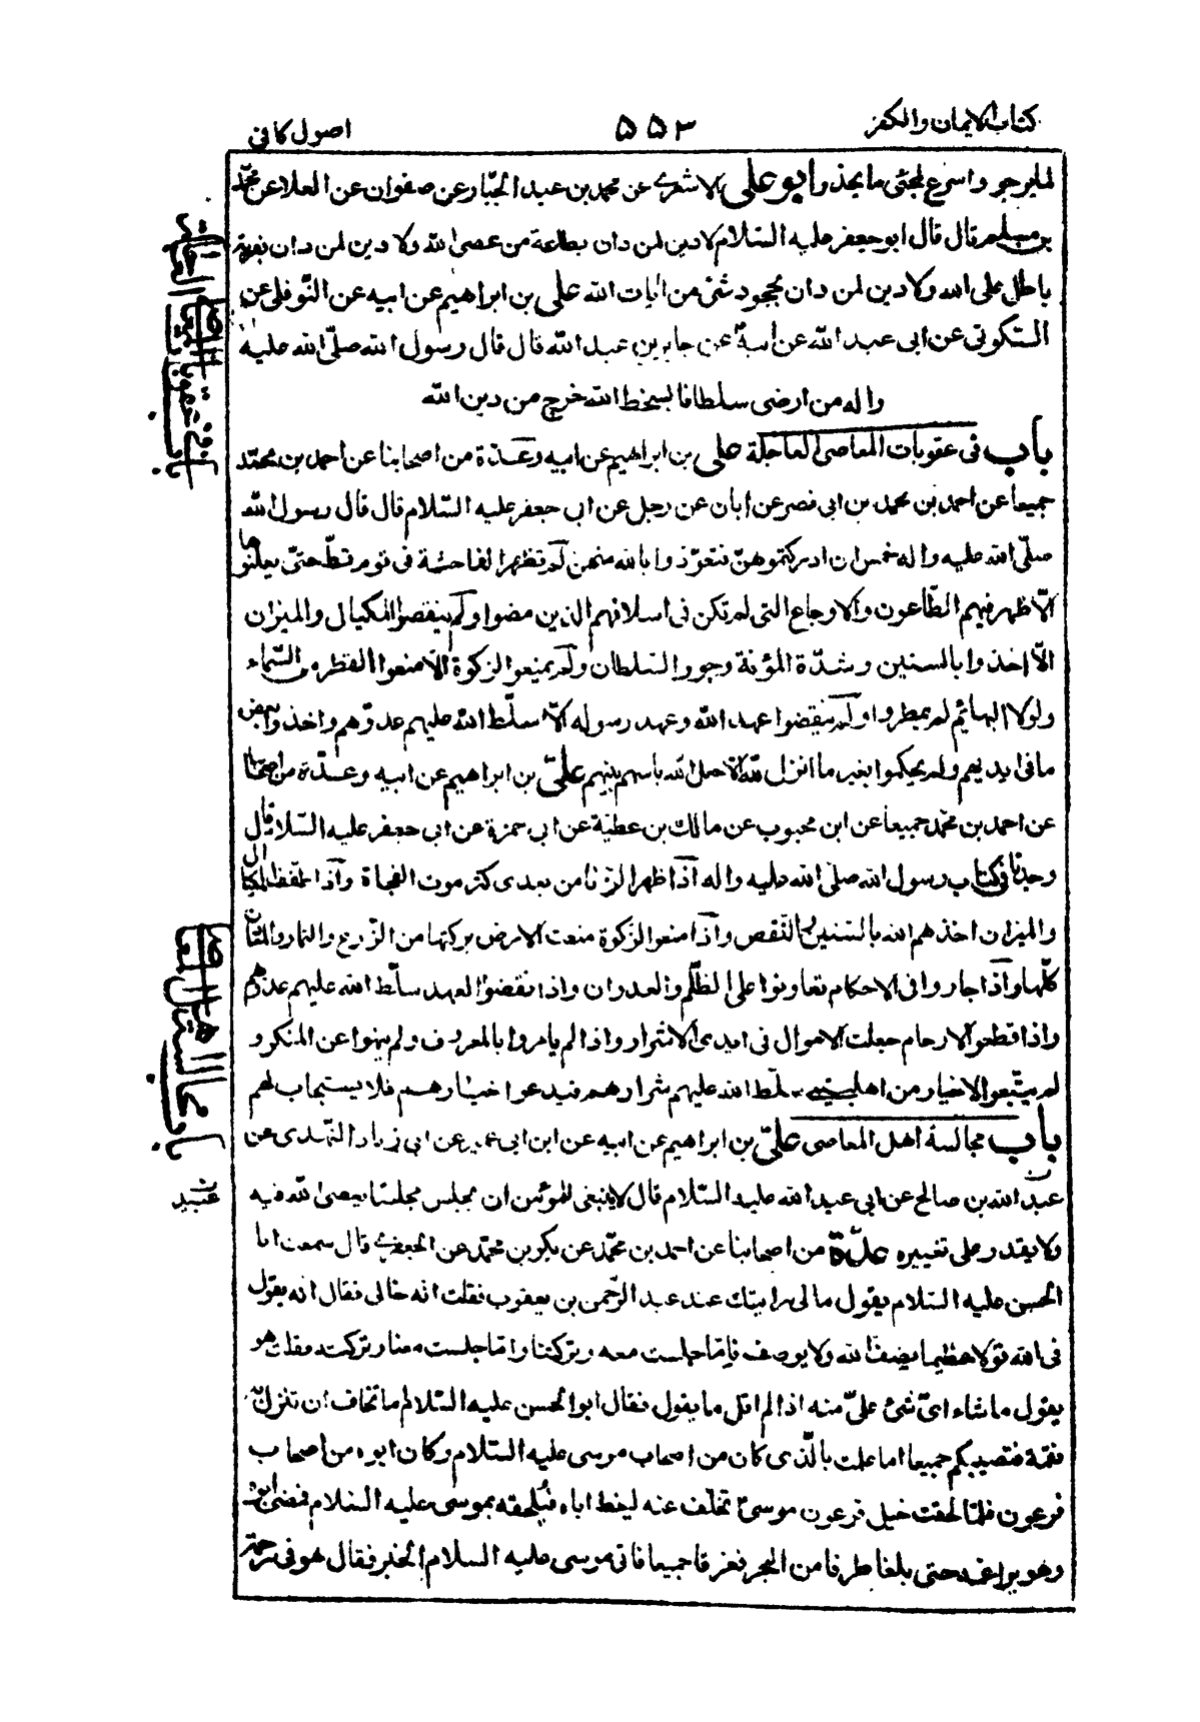 كتاب الايمان والكفر
۵۵۳
اصول كافى
لما يرجو واسرع لمجئى ما يحذر وابو على الاشعرى عن محمد بن عبد الجبّار عن صفوان عن العلا عن محمّد
بن مسلم قال قال ابو جعفر عليه السّلام لا دين لمن دان بطاعة من عصى الله ولا دين لمن دان بفرية
باطل على الله ولا دين لمن دان بجحود شئ من ايات الله على بن ابراهيم عن ابيه عن النّوفلى عن
السّكونى عن ابى عبد الله عن ابيه عن جابر بن عبد الله قال قال رسول الله صلّى الله عليه
واله من ارضى سلطانا بسخط الله خرج من دين الله
باب فى عقوبات المعاصى العاجلة على بن ابراهيم عن ابيه وعدّة من اصحابنا عن احمد بن محمّد
جميعا عن احمد بن محمد بن ابى نصر عن ابان عن رجل عن ابى جعفر عليه السّلام قال قال رسول الله
صلّى الله عليه واله خمس ان ادركتموهنّ فتعوّذوا بالله منهن لم تظهر الفاحشة فى قوم قطّ حتىّ يعلنوها
الاّ ظهر فيهم الطّاعون والاوجاع التى لم تكن فى اسلافهم الذين مضوا ولم ينقصوا المكيال والميزان
الاّ اخذوا بالسنين وشدّة المؤنة وجور السّلطان ولم يمنعوا الزكوة الاّ منعوا القطر من السّماء
ولولا البهائم لم يمطروا ولم ينقضوا عهد الله وعهد رسوله الاّ سلّط الله عليهم عدوّهم واخذوا بعض
ما فى ايديهم ولم يحكموا بغير ما انزل الله الا جعل الله باسهم بينهم علىّ بن ابراهيم عن ابيه وعدّة من اصحابنا
عن احمد بن محمّد جميعا عن ابن محبوب عن مالك بن عطيّة عن ابى حمزة عن ابى جعفر عليه السّلام قال
وجدنا فى كتاب رسول الله صلّى الله عليه واله اذا ظهر الزّنا من بعدى كثر موت الفجاة واذا طفف المكيال
والميزان اخذهم الله بالسّنين والنّقص واذا منعوا الزّكوة منعت الارض بركتها من الزّرع والثمار والمعادن
كلّها واذا جاروا فى الاحكام تعاونوا على الظّلم والعدوان واذا نقضوا العهد سلّط الله عليهم عدوّهم
واذا قطعوا الارحام جعلت الاموال فى ايدى الاشرار واذا لم يامروا بالمعروف ولم ينهوا عن المنكر و
لم يتّبعوا الاخيار من اهل بيتى سلّط الله عليهم شرارهم فيدعوا خيارهم فلا يستجاب لهم
باب مجالسة اهل المعاصى علىّ بن ابراهيم عن ابيه عن ابن ابى عمير عن ابى زياد النّهدى عن
عبد الله بن صالح عن ابى عبد الله عليه السّلام قال لا ينبغى للمؤمن ان يجلس مجلسا يعصى الله فيه
ولا يقدر على تغييره عدّة من اصحابنا عن احمد بن محمّد عن بكر بن محمّد عن الجعفرى قال سمعت ابا
الحسن عليه السّلام يقول ما لى رايتك عند عبد الرّحمن بن يعقوب فقلت انّه خالى فقال انه يقول
فى الله قولا عظيما يصف الله ولا يوصف فامّا جلست معه وتركتنا وامّا جلست معنا وتركته فقلت هو
يقول ما شاء اىّ شئ علىّ منه اذا لم اقل ما يقول فقال ابو الحسن عليه السّلام اما تخاف ان تنزل به
نقمة فتصيبكم جميعا اما علمت بالّذى كان من اصحاب موسى عليه السّلام وكان ابوه من اصحاب
فرعون فلمّا لحقت خيل فرعون موسى تخلّف عنه ليعظ اباه فيلحقه بموسى عليه السّلام فمضى ابوه
وهو يراغمه حتى بلغا طرفا من البحر فغرقا جميعا فاتى موسى عليه السلام الخبر فقال هو فى رحمة
باب فى عقوبات المعاصى العاجلة
باب مجالسة اهل المعاصى